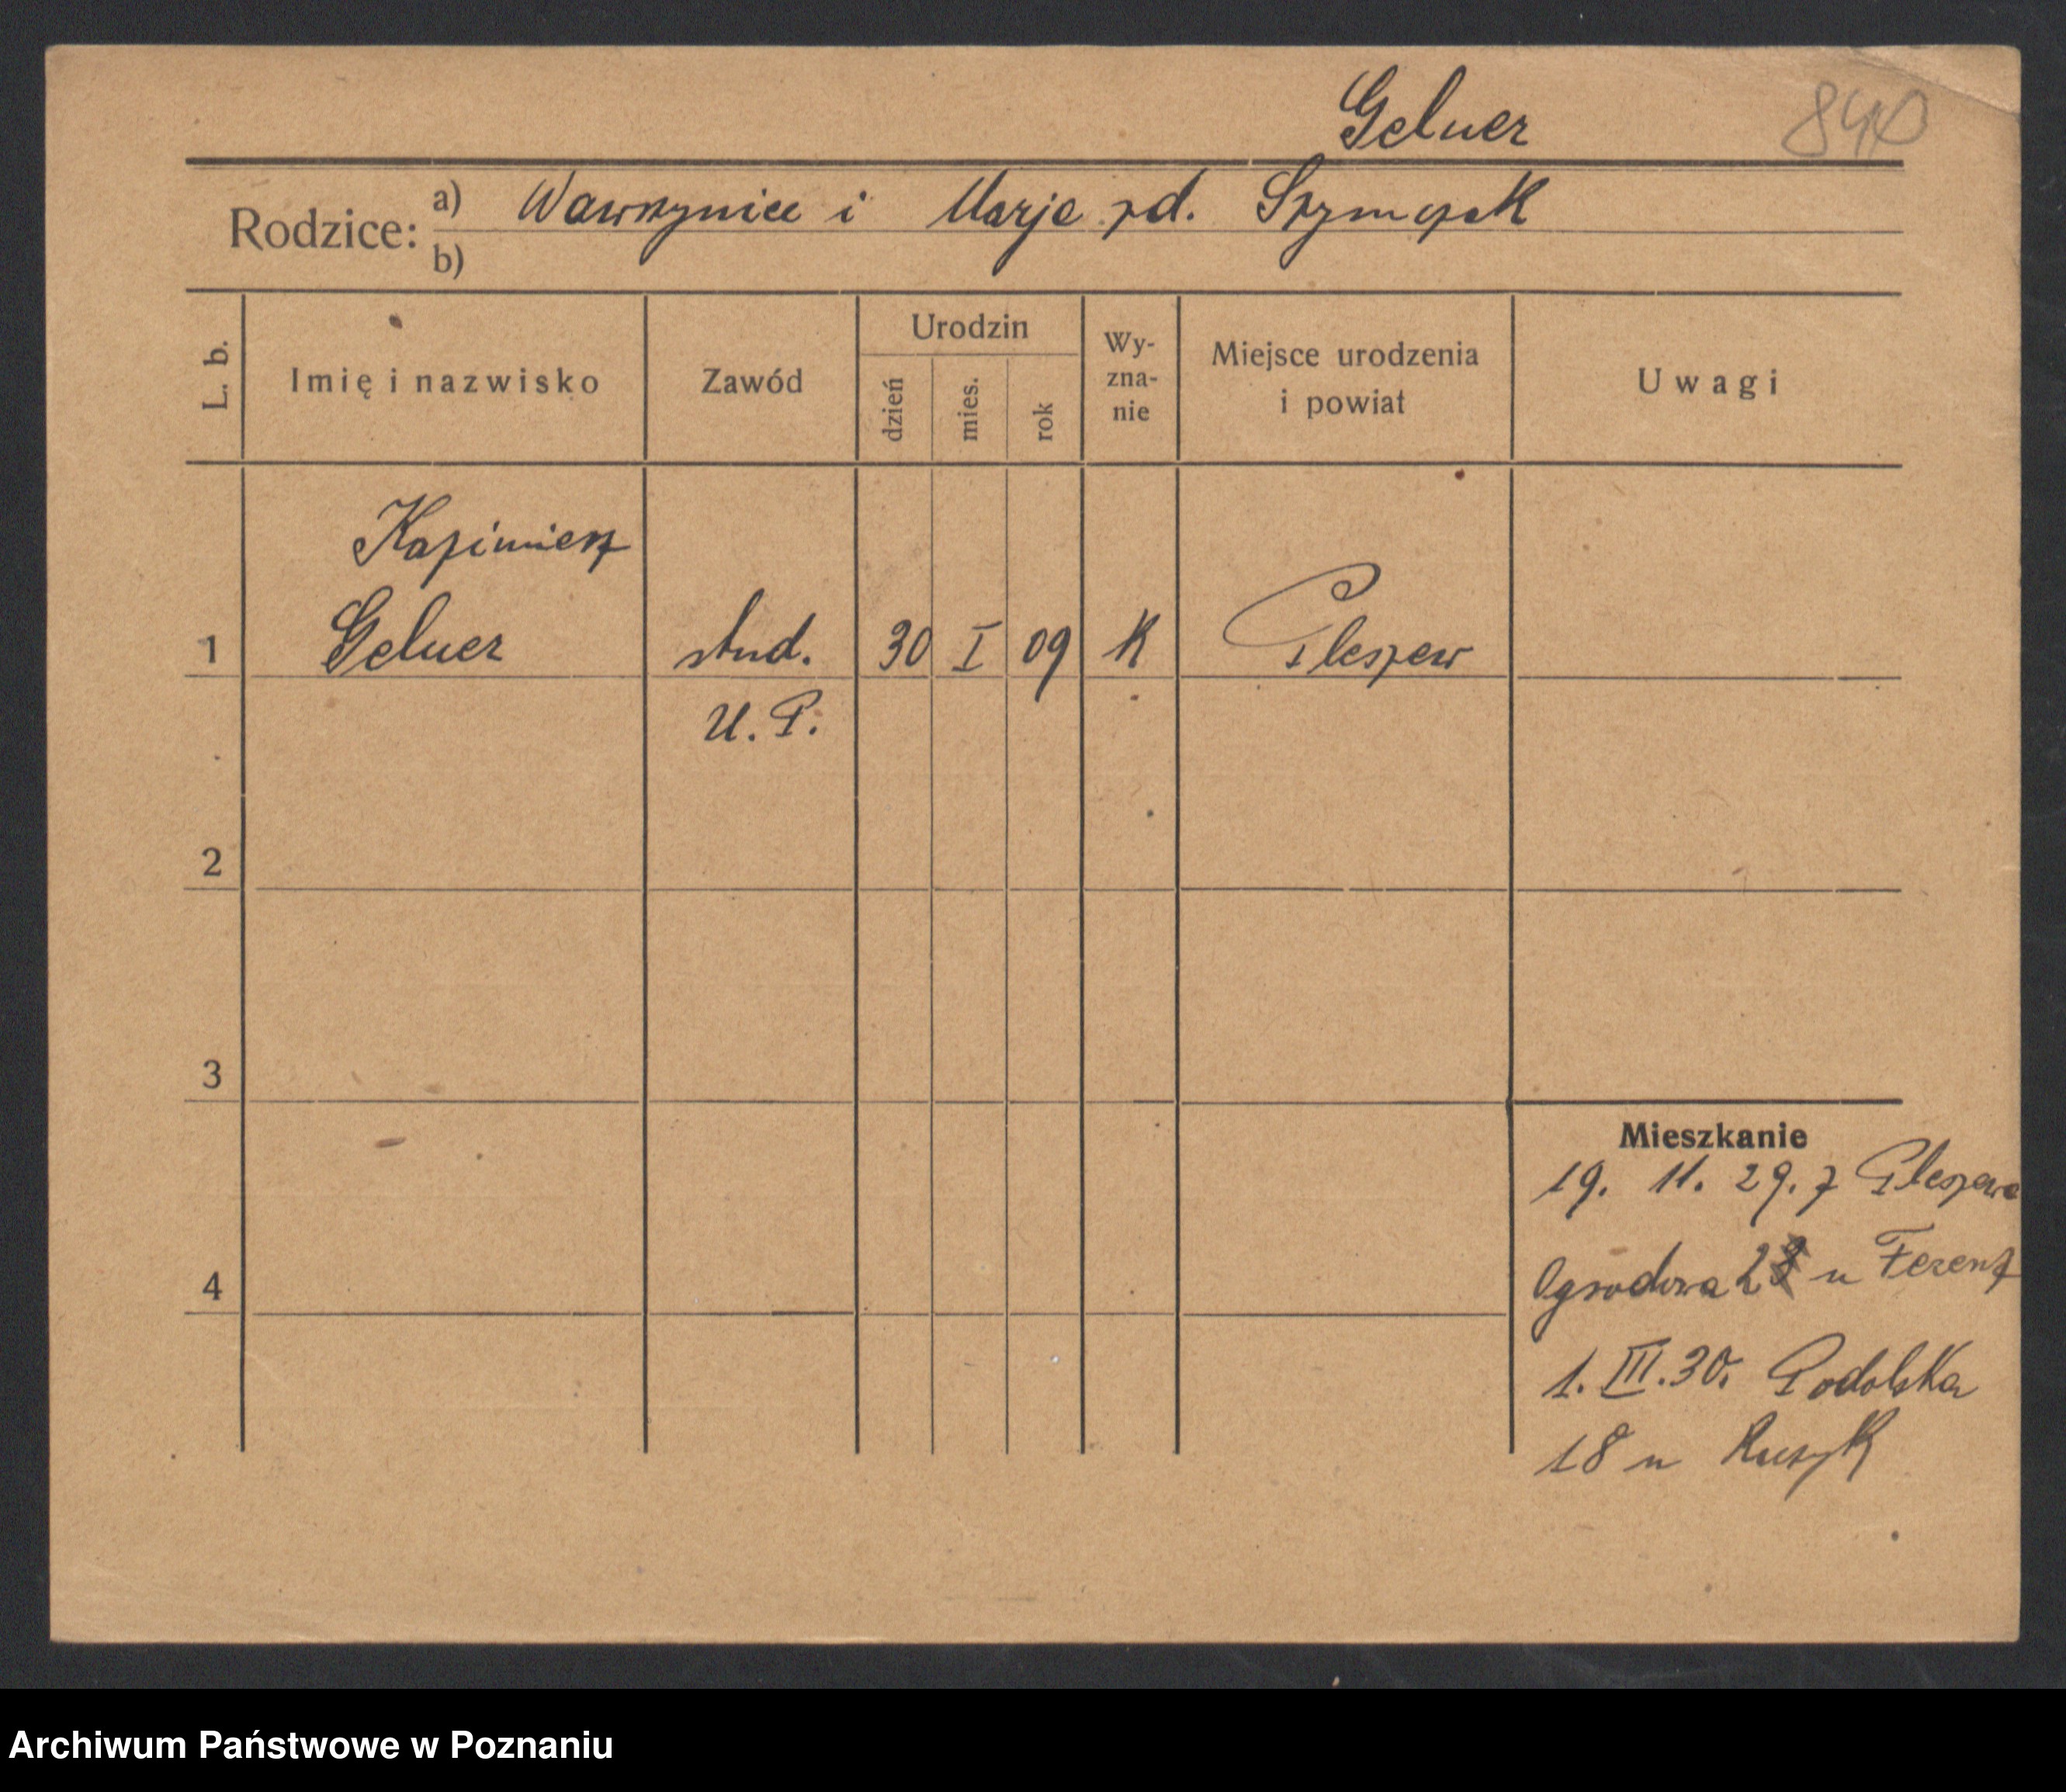 Gelner
840
Rodzice: a) Wawrzyniec i Marja zd. Szymczak
b)
L. b.
Imię i nazwisko
Zawód
Urodzin
dzień
mies.
rok
Wy-
zna-
nie
Miejsce urodzenia
i powiat
Uwagi
Kazimierz
1 Gelner stud. 30 I 09 K Pleszew
U. P.
2
3
Mieszkanie
19. 11. 29. z Pleszewa
4
Ogrodowa u Ferenz
1. III. 30. Podolska
18 u
Archiwum Państwowe w Poznaniu